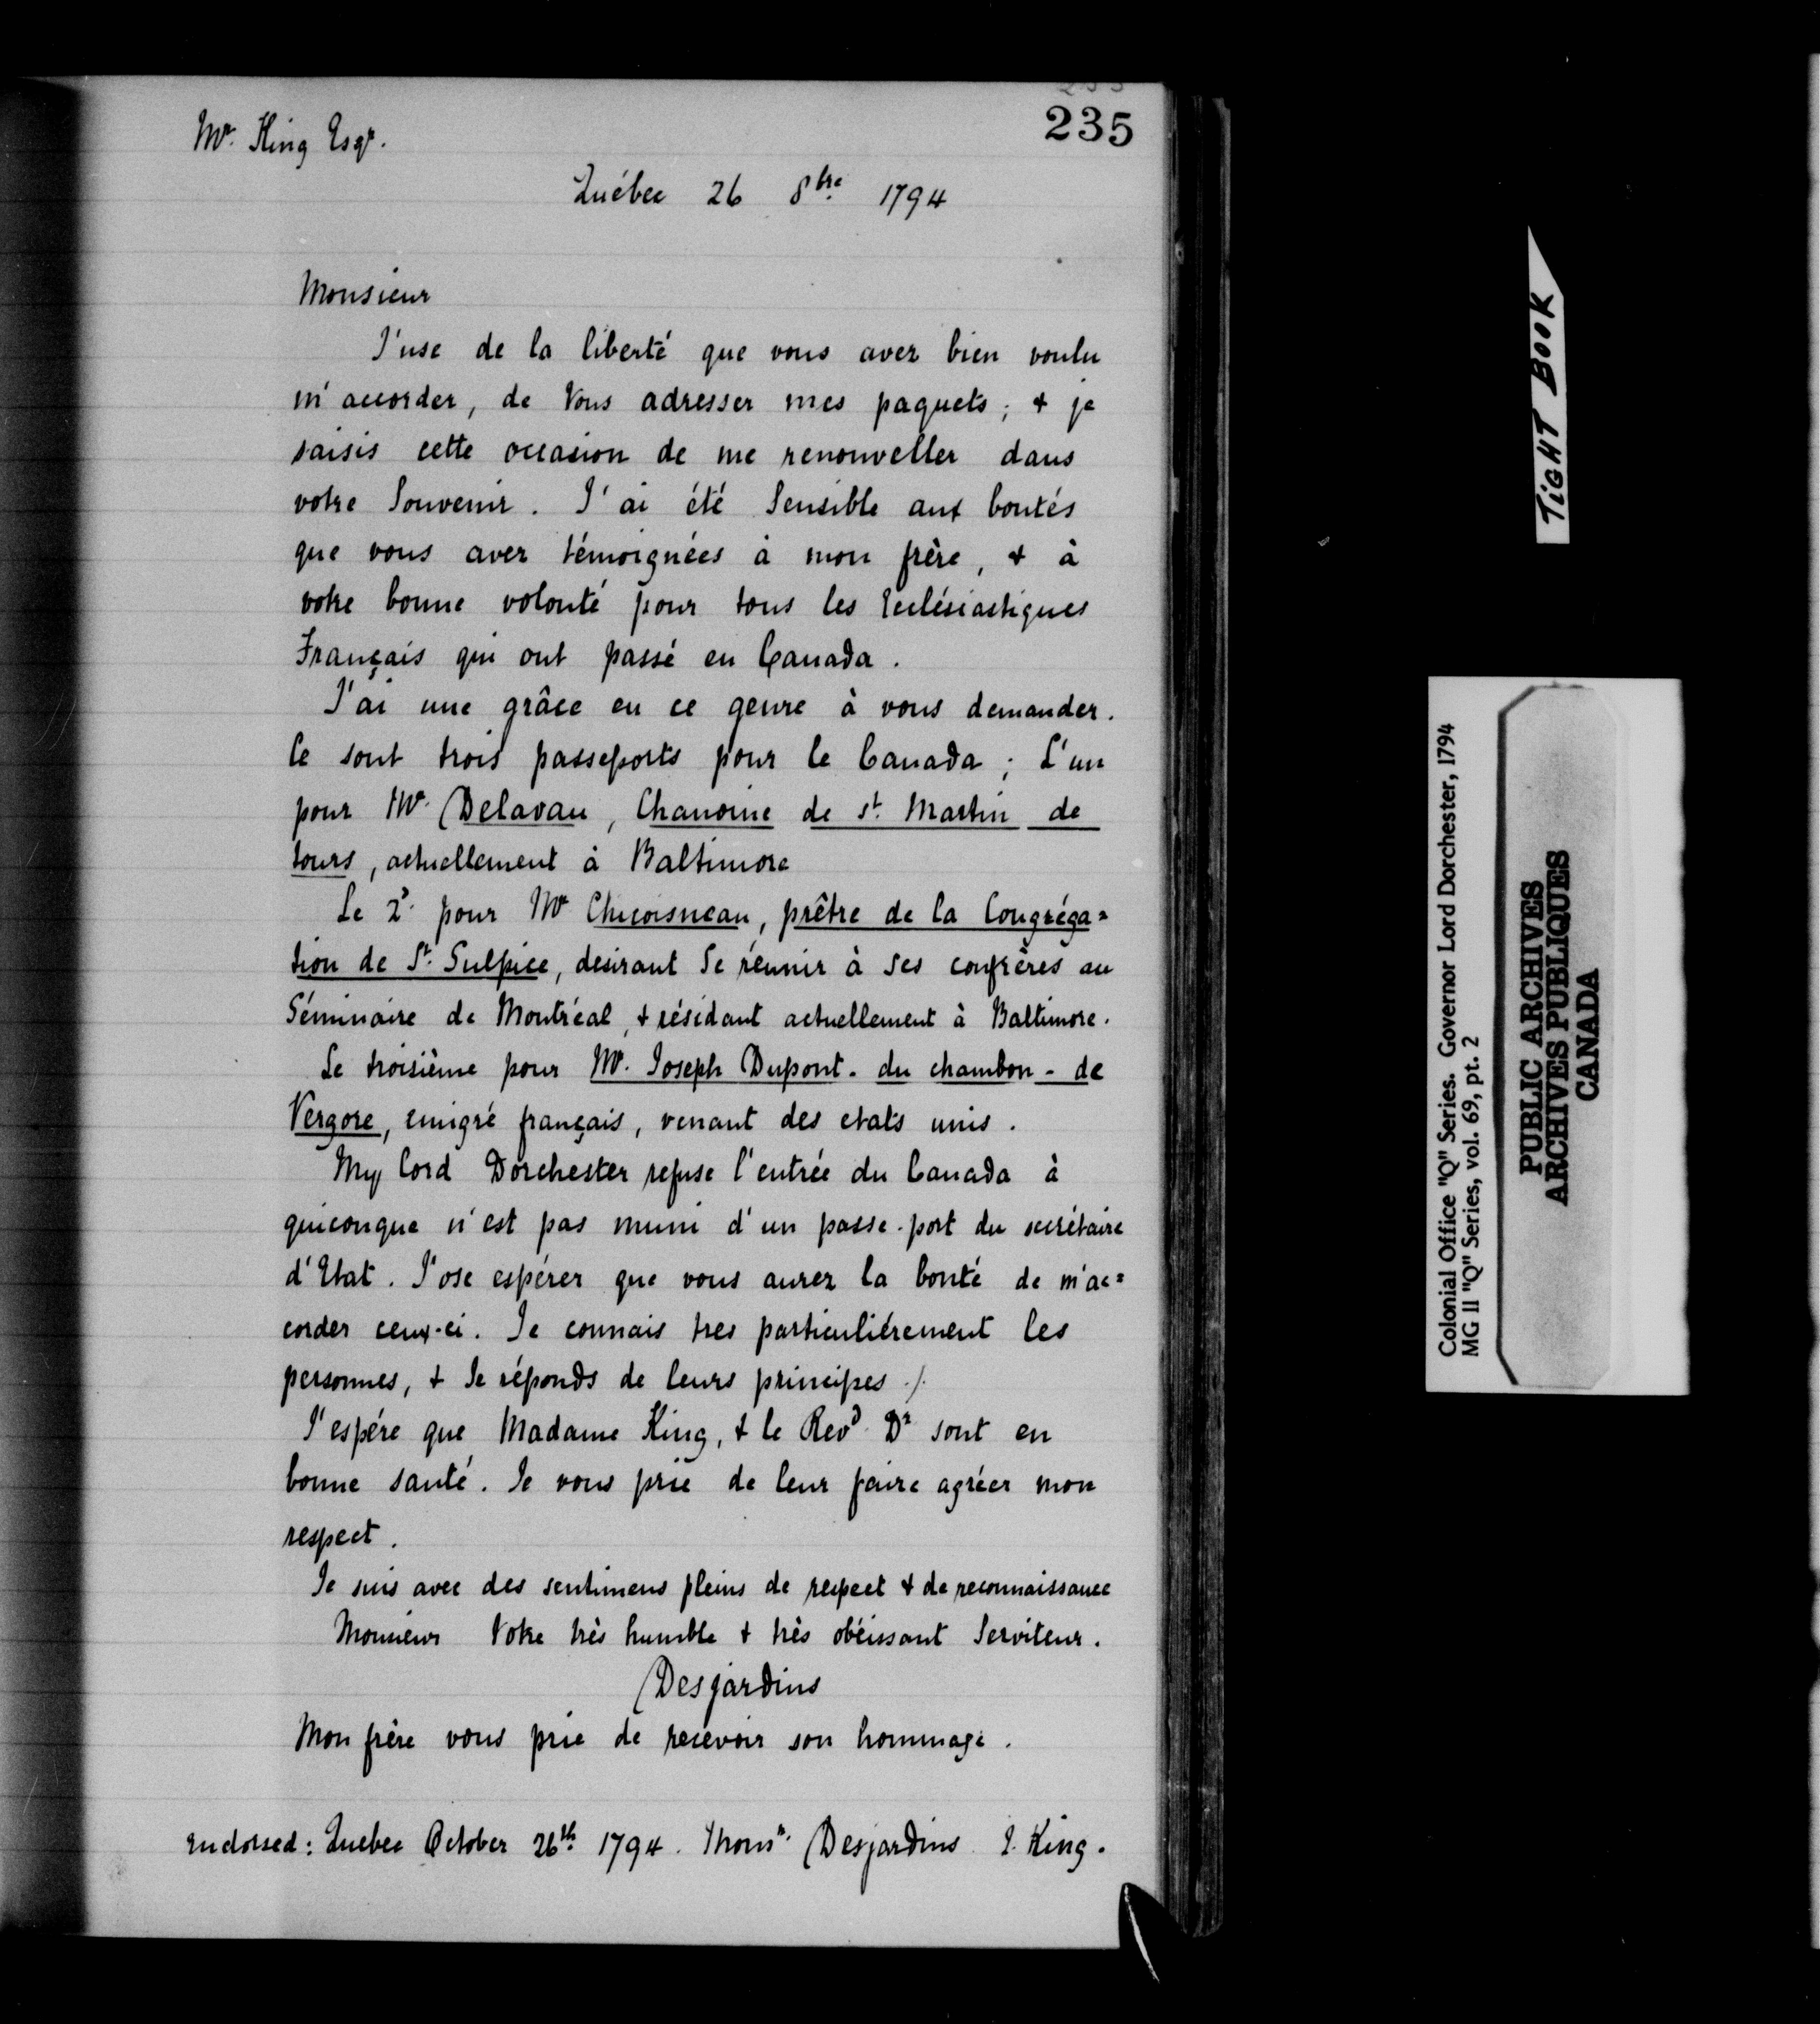 235
Mr. King Esqr.
Québec 26 8bre 1794
Monsieur
J'use de la liberté que vous avez bien voulu
m'accorder, de Vous adresser mes paquets; & je
saisis cette occasion de me renouveller dans
votre Souvenir. J'ai été Sensible aux bontés
que vous avez témoignées à mon frère, & à
votre bonne volonté pour tous les Ecclésiastiques
Français qui ont passé en Canada.
J'ai une grâce en ce genre à vous demander.
Ce sont trois passeports pour le Canada; L'un
pour Mr. Delavau, Chanoine de St. Martin de
tours, actuellement à Baltimore
Le 2d. pour Mr Chicoisneau, prêtre de la Congréga=
tion de St. Sulpice, desirant Se réunir à Ses confrères au
Séminaire de Montréal, & résidant actuellement à Baltimore.
Le troisième pour Mr. Joseph Dupont - du chambon - de
Vergore, emigré français, venant des etats unis.
My Lord Dorchester refuse l'entrée du Canada à
quiconque n'est pas muni d'un passe-port du secrétaire
d'Etat. J'ose espérer que vous aurez la bonté de m'ac=
corder ceux-ci. Je connais tres particuliérement les
personnes, & Je réponds de leurs principes ./.
J'espére que Madame King, & le Revd. Dr sont en
bonne santé. Je vous prie de leur faire agréer mon
respect.
Je suis avec des sentimens pleins de respect & de reconnaissance
Monsieur Votre très humble & très obéissant Serviteur.
Desjardins
Mon frère vous prie de recevoir son hommage.
Endorsed: Quebec October 26th 1794. Monsr. Desjardins J. King.
TIGHT BOOK
Colonial Office "Q" Series. Governor Lord Dorchester, 1794
MG II "Q" Series, vol. 69, pt. 2
PUBLIC ARCHIVES
ARCHIVES PUBLIQUES
CANADA